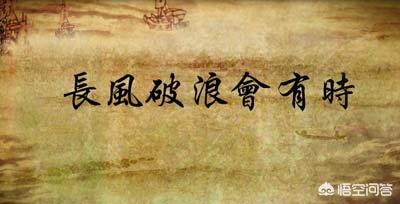 長風破浪會有時
悟空问答